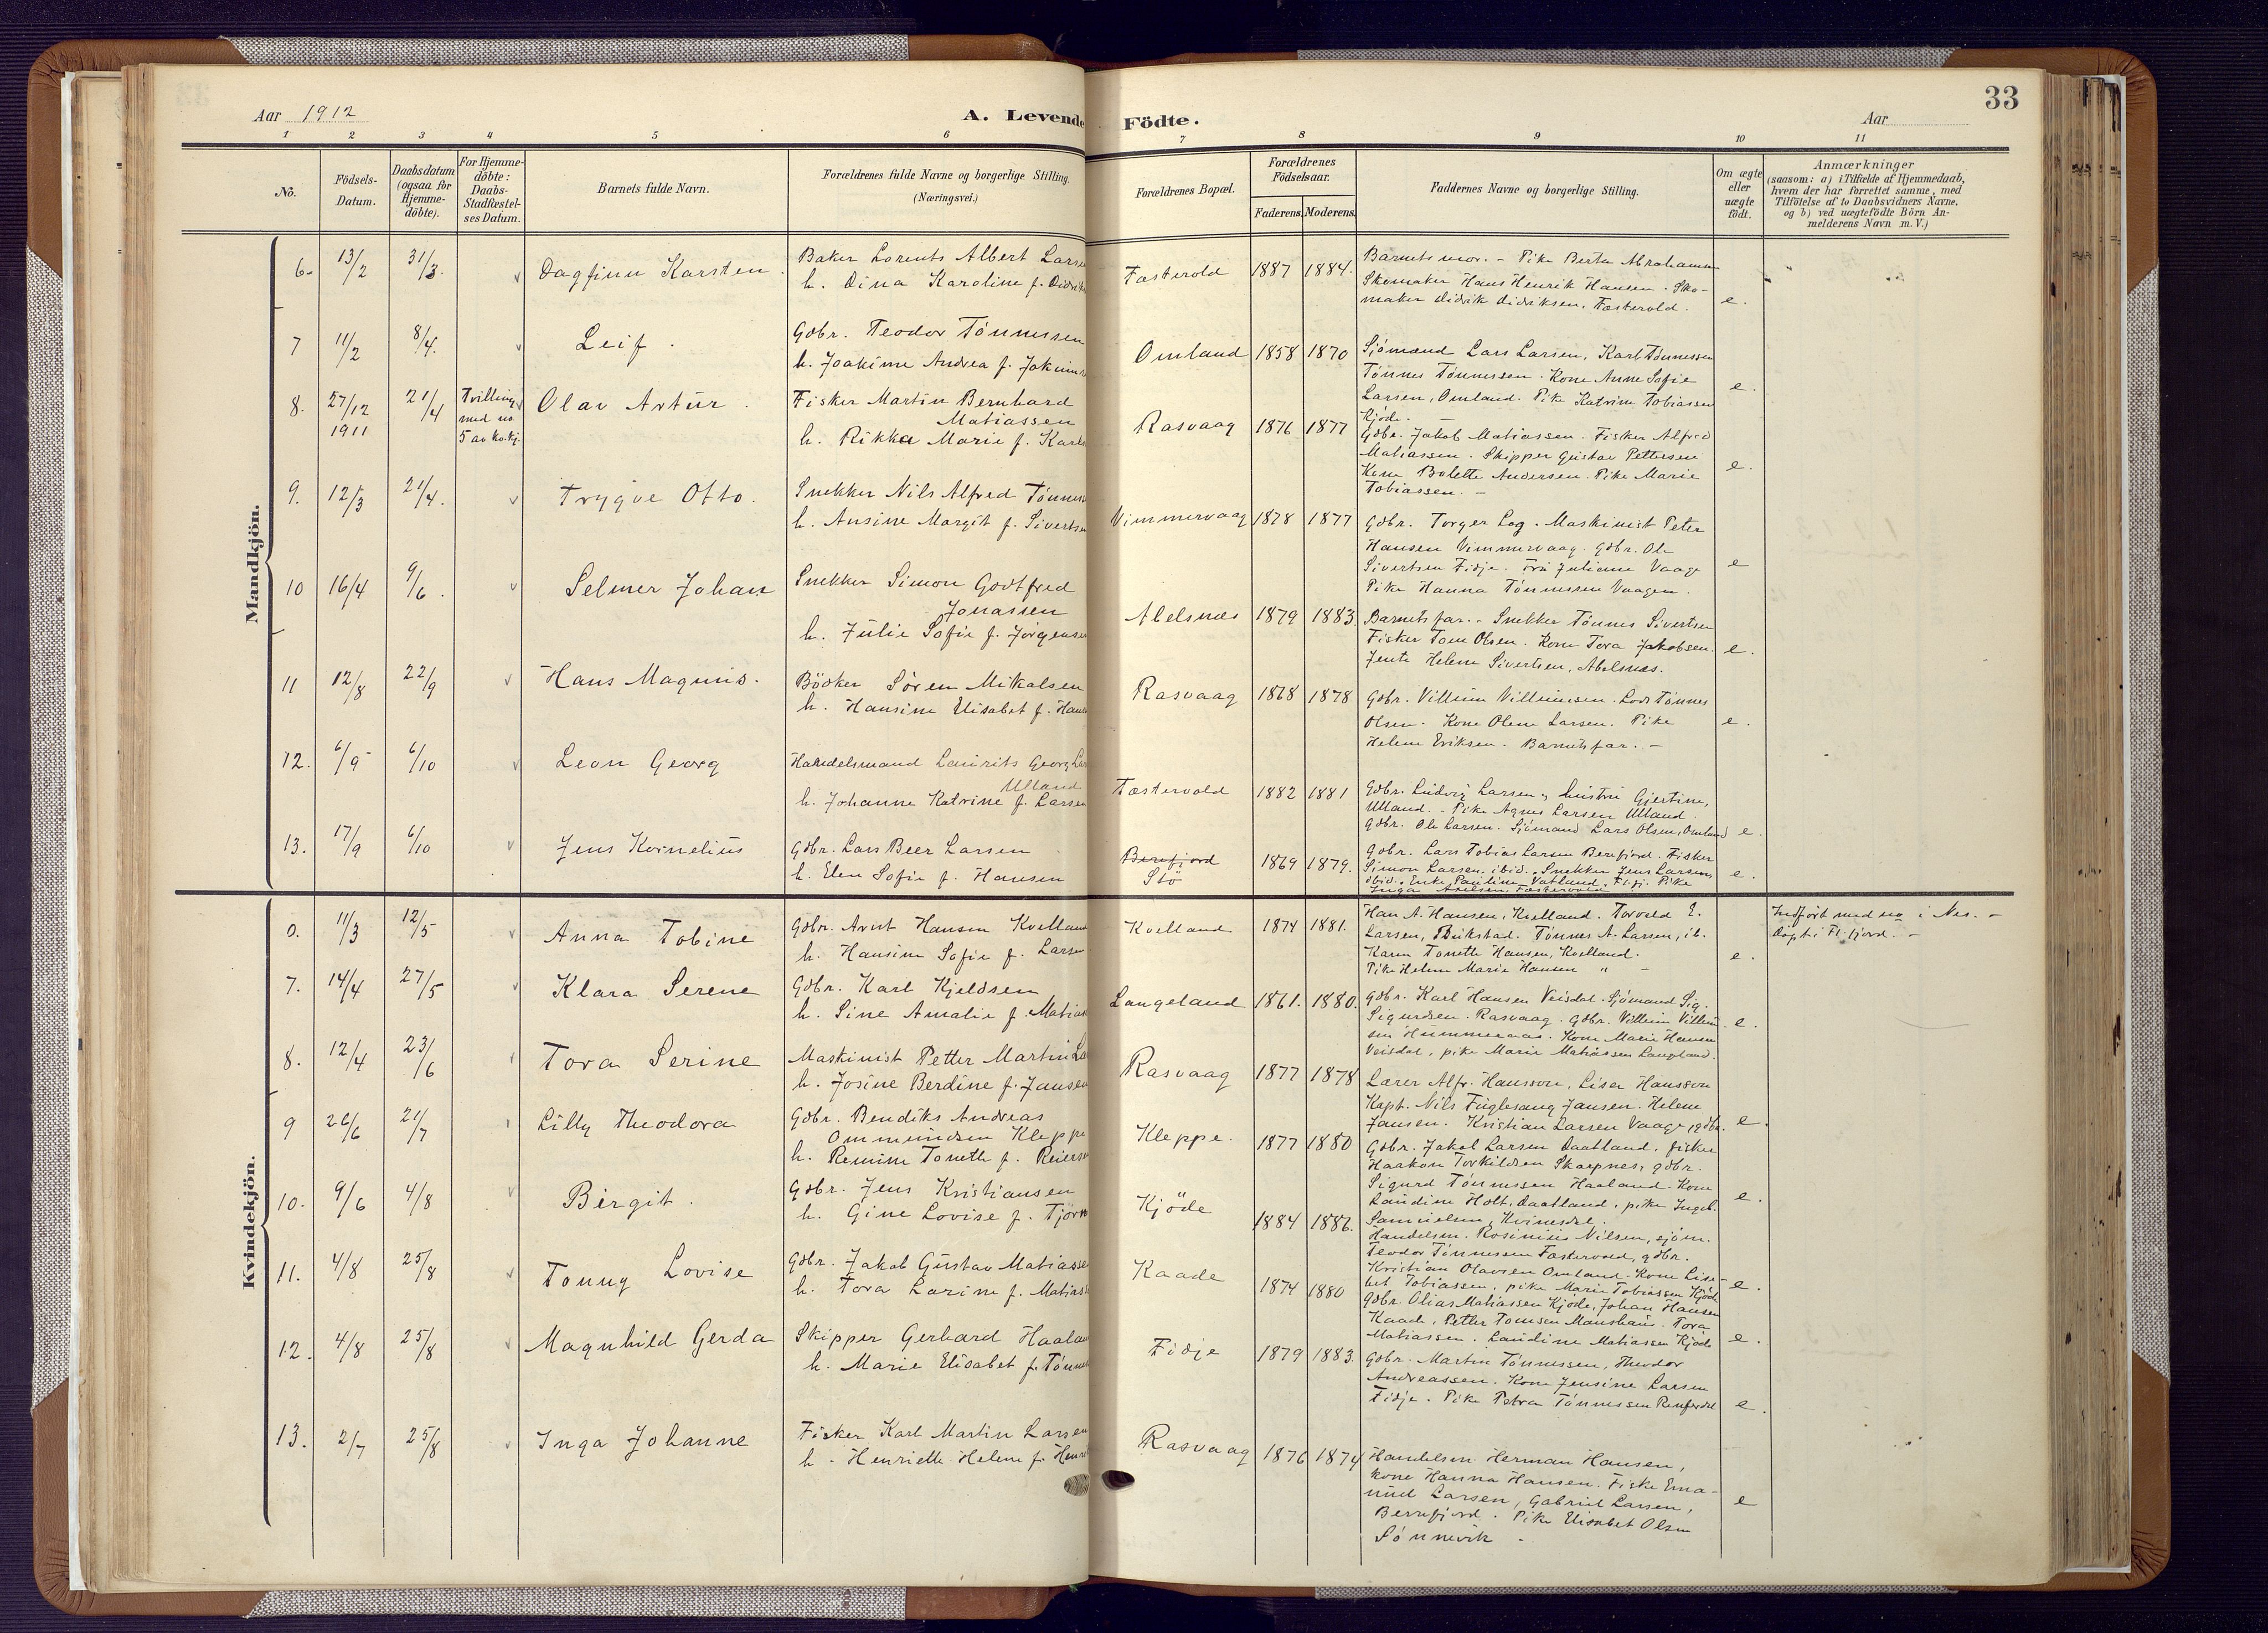 33
Aar 1912
A. Levende Födte.
Aar
1 2 3 4 5 6 7 8 9 10 11
No.
Födsels-
Datum.
Daabsdatum
(ogsaa for
Hjemme-
döbte).
For Hjemme-
döbte:
Daabs-
Stadfæstel-
ses Datum.
Barnets fulde Navn.
Forældrenes fulde Navne og borgerlige Stilling.
(Næringsvei.)
Forældrenes Bopæl.
Forældrenes
Födselsaar.
Faderens. Moderens.
Faddernes Navne og borgerlige Stilling.
Om ægte
eller
uægte
födt.
Anmærkninger
(saasom: a) i Tilfælde af Hjemmedaab,
hvem der har forrettet samme, med
Tilföielse af to Daabsvidners Navne,
og b) ved uægtefödte Börn An-
melderens Navn m.V.)
Mandkjön.
6. 13/2 31/3. Dagfinn Karsten.
Baker Lorents Albert Larse
h. Dina Karoline f. Didrik
Fæstervold 1887 1884.
Barnets mor. - Pike Berta Abrahamsen
Skomaker Hans Henrik Hansen. Sko-
maker Didrik Didriksen, Fæstervold. e.
7 11/2 8/4. Leif.
Gdbr. Teodor Tønnessen
h. Joakime Andrea f. Jokims
Omland 1858 1870
Sjömænd Lars Larsen, Karl Tønnessen
Tønnes Tønnessen. Kone Anne Sofie
Larsen, Omland. Pike Katrine Tobiassen
Kjöde. - e.
8. 27/12 1911 21/4
Tvilling
med no
5 av kv.kj.
Olav Artur.
Fisker Martin Bernhard
Matiassen
h. Rikka Marie f. Karl
Rasvaag 1876 1877
Gdbr. Jakob Matiassen. Fisker Alfred
Matiassen. Skipper Gustav Pettersen
Kone Bolette Andersen. Pike Marie
Tobiassen. - e.
9. 12/3 21/4. Trygve Otto.
Snekker Nils Alfred Tønnes
h. Ansine Margit f. Sivertse
Vimmervaag 1878 1877
Gdbr. Torger Log. Maskinist Peter
Hansen Vimmervaag. Gdbr. Ole
Sivertsen Fidje. Fru Juliane Vaage
Pike Hanna Tønnessen Vaagen. e
10 16/4 9/6. Selmer Johan
Snekker Simon Godtfred
Jonassen
h. Julie Sofie f. Jørgense
Abelsnes 1879 1883.
Barnets far. - Snekker Tønnes Sivertsen
Fisker Tom Olsen. Kone Tora Jakobsen.
Jente Helene Sivertsen, Abelsnes. e.
11 12/8 22/9 Hans Magnus.
Bödker Søren Mikalsen
h. Hansine Elisabet f. Hans
Rasvaag 1868 1878
Gdbr. Villum Villumsen. Lods Tønnes
Olsen. Kone Olene Larsen. Pike
Helene Eriksen. Barnets far. - e.
12. 6/9 6/10 Leon Georg
Handelsmand Laurits Georg Lar
Ulland
h. Johanne Katrine f. Larse
Fæstervold 1882 1881
Gdbr. Ludvig Larsen, hustru Gjertine,
Ulland. - Pike Agnes Larsen Ulland.
Gdbr. Ole Larsen. Sjömand Lars Olsen, Omland e.
13. 17/9 6/10 Jens Kornelius
Gdbr. Lars Beer Larsen
h. Elen Sofie f. Hansen
Berefjord
Stö
1869 1879.
Gdbr. Lars Tobias Larsen Berefjord. Fisker
Simon Larsen, ibid. Snekker Jens Larsen
ibid. Enke Pauline Vatland, Fisj. Pike
Inga Axelsen, Fæstervold. e.
Kvindekjön.
0. 11/3 12/5 Anna Tobine
Gdbr. Arnt Hansen Kvelland
h. Hansine Sofie f. Larse
Kvelland 1874 1881.
Han A. Hansen, Kvelland. Torvald E.
Larsen, Bukstad. Tønnes A. Larsen, ib.
Karen Tonette Hansen, Kvelland.
Pike Helene Marie Hansen " - e.
Indført med no i Nes. -
døpt i Fl.fjord. -
7. 14/4 27/5 Klara Serene
Gdbr. Karl Kjeldsen
h. Sine Amalie f. Matias
Langeland 1861. 1880.
Gdbr. Karl Hansen Veisdal. Sjömand Sig.
Sigurdsen. Rasvaag. Gdbr. Villum Villum
sen Hummeraas. Kone Marie Hansen
Veisdal, pike Marie Matiassen Langland. e.
8. 12/4 23/6 Tora Serine
Maskinist Petter Martin La
h. Josine Berdine f. Janse
Rasvaag 1877 1878
Lærer Alfr. Hansson, Lisa Hansson
Kapt. Nils Fuglesang Jansen. Helene
Jansen. Kristian Larsen Vaage, gdbr. e.
9 26/6 21/7 Lilly Theodora
Gdbr. Bendiks Andreas
Ommundsen Kleppe
h. Remine Tonette f. Reiers
Kleppe. 1877 1880
Gdbr. Jakob Larsen Daatland, fisker
Haakon Torkildsen Skarpnes, gdbr.
Sigurd Tønnessen Haaland. Kone
Landine Holt, Daatland, pike Ingeb.
Samuelsen, Kvinesdal. e.
10. 9/6 4/8 Birgit.
Gdbr. Jens Kristiansen
h. Gine Lovise f. Tjörn
Kjöde 1884 1886.
Handelsm. Rosinius Nilsen, sjöm.
Teodor Tønnessen Fæstervold, gdbr.
Kristian Olavsen Omland. Kone Lisa-
bet Tobiassen, pike Marie Tobiassen Kjöde e.
11. 4/8 25/8 Tonny Lovise
Gdbr. Jakob Gustav Matiasse
h. Tora Larine f. Matias
Kaade 1874 1880
Gdbr. Olias Matiassen Kjöde, Johan Hansen
Kaade, Petter Tomsen Maushaus. Tora
Matiassen. Landine Matiassen Kjöde e.
12. 4/8 25/8 Magnhild Gerda
Skipper Gerhard Haalan
h. Marie Elisabet f. Tønne
Fidje 1879 1883.
Gdbr. Martin Tønnessen, Theodor
Andreassen. Kone Jensine Larsen
Fidje. Pike Petra Tønnessen e.
13. 2/7 25/8 Inga Johanne
Fisker Karl Martin Larsen
h. Henriette Helene f. Henri
Rasvaag 1876 1874
Handelsm. Herman Hansen,
kone Hanna Hansen. Fiske Ema-
nuel Larsen, Gabriel Larsen,
Berrefjord. Pike Elisabet Olsen
Sönnevik - e